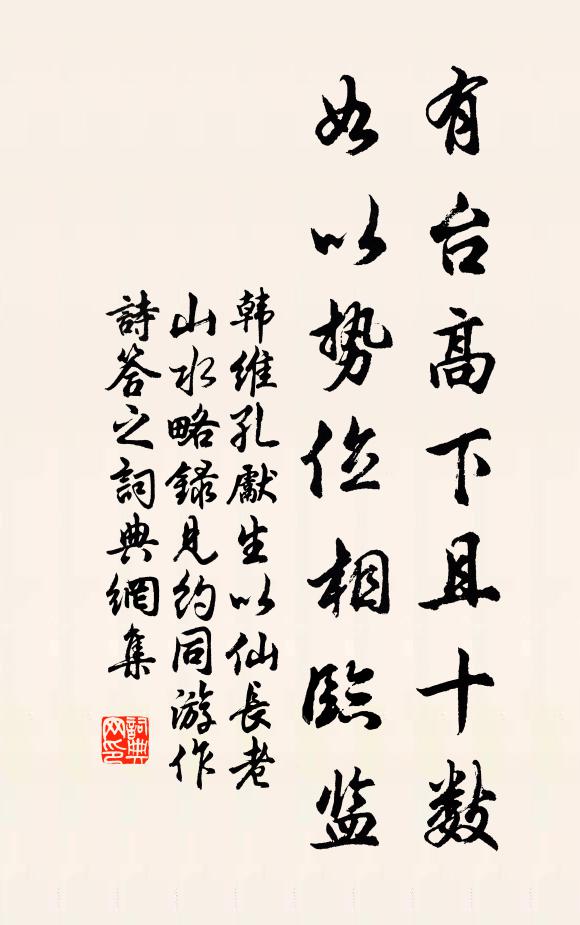 有台高下且十数
如以势位相临监
韩维孔献生以仙长老
山水略録见约同游作
詩答之詞典網集
詞典网印